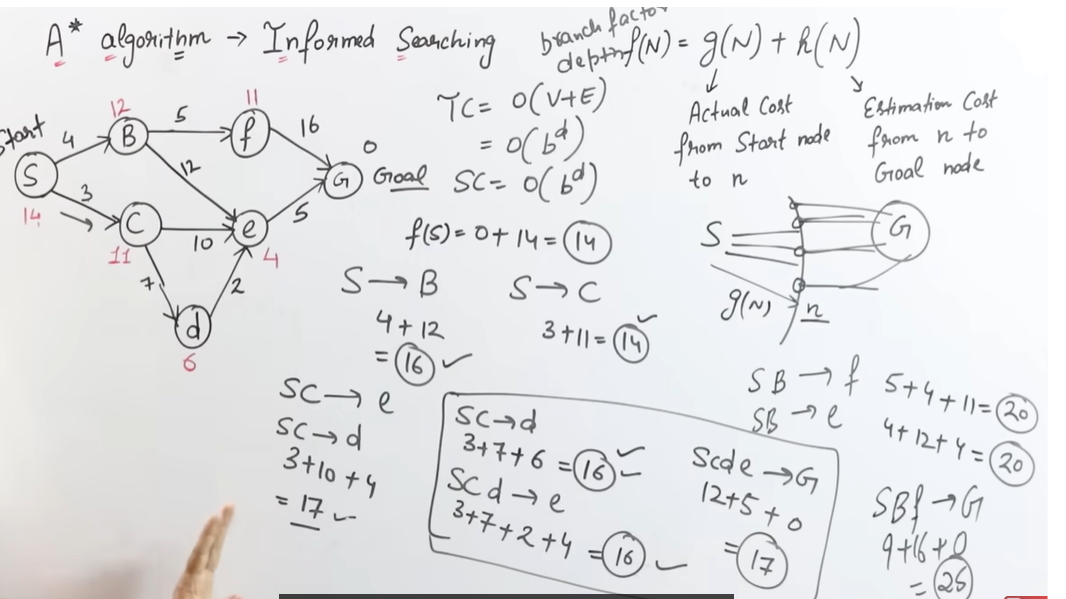 A* algorithm → Informed Searching
branch factor
depth
f(N) = g(N) + h(N)
Actual Cost
from Start node
to n
Estimation Cost
from n to
Goal node
TC = O(V+E)
= O(b^d)
SC = O(b^d)
Start
S
14
4
3
B
12
5
12
f
11
16
G
0
Goal
C
11
10
7
e
4
5
d
6
2
f(S) = 0 + 14 = 14
S → B
4 + 12
= 16 ✓
S → C
3 + 11 = 14 ✓
S
G
g(N)
n
SC → e
SC → d
3 + 10 + 4
= 17 ✓
SC → d
3 + 7 + 6 = 16 ✓✓
SCd → e
3 + 7 + 2 + 4 = 16 ✓
Scde → G
12 + 5 + 0
= 17
SB → f 5 + 4 + 11 = 20
SB → e 4 + 12 + 4 = 20
SBf → G
9 + 16 + 0
= 25